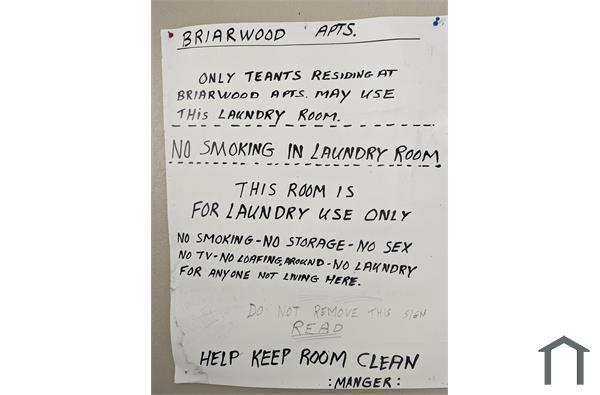 BRIARWOOD APTS.
ONLY TEANTS RESIDING AT
BRIARWOOD APTS. MAY USE
THIS LAUNDRY ROOM.
NO SMOKING IN LAUNDRY ROOM
THIS ROOM IS
FOR LAUNDRY USE ONLY
NO SMOKING-NO STORAGE-NO SEX
NO TV-NO LOAFING AROUND-NO LAUNDRY
FOR ANYONE NOT LIVING HERE.
DO NOT REMOVE THIS SIGN
READ
HELP KEEP ROOM CLEAN
:MANGER: